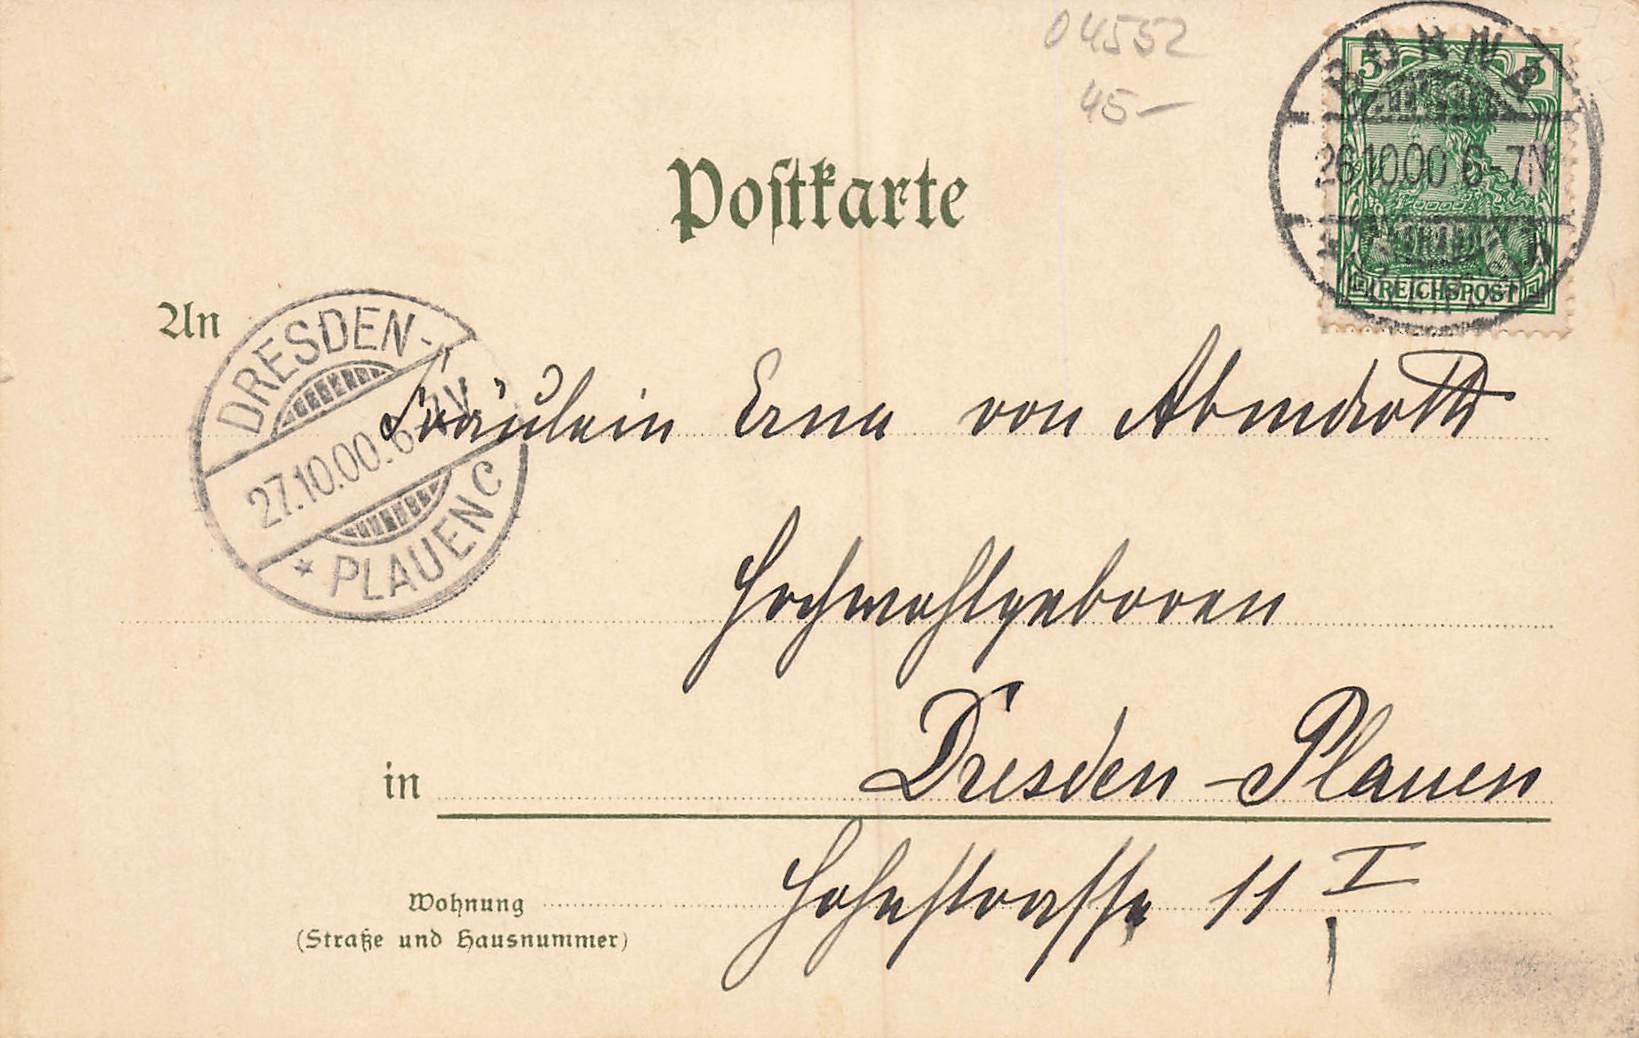 04552
45-
BORNA
5 5
26.10.00 6-7N
REICHSPOST
Postkarte
An
DRESDEN-
27.10.00. 6-7V.
* PLAUEN c
Fräulein Erna von Abendroth
Hochwohlgeboren
in Dresden-Plauen
Wohnung Hohestrasse 11 I
(Straße und Hausnummer)